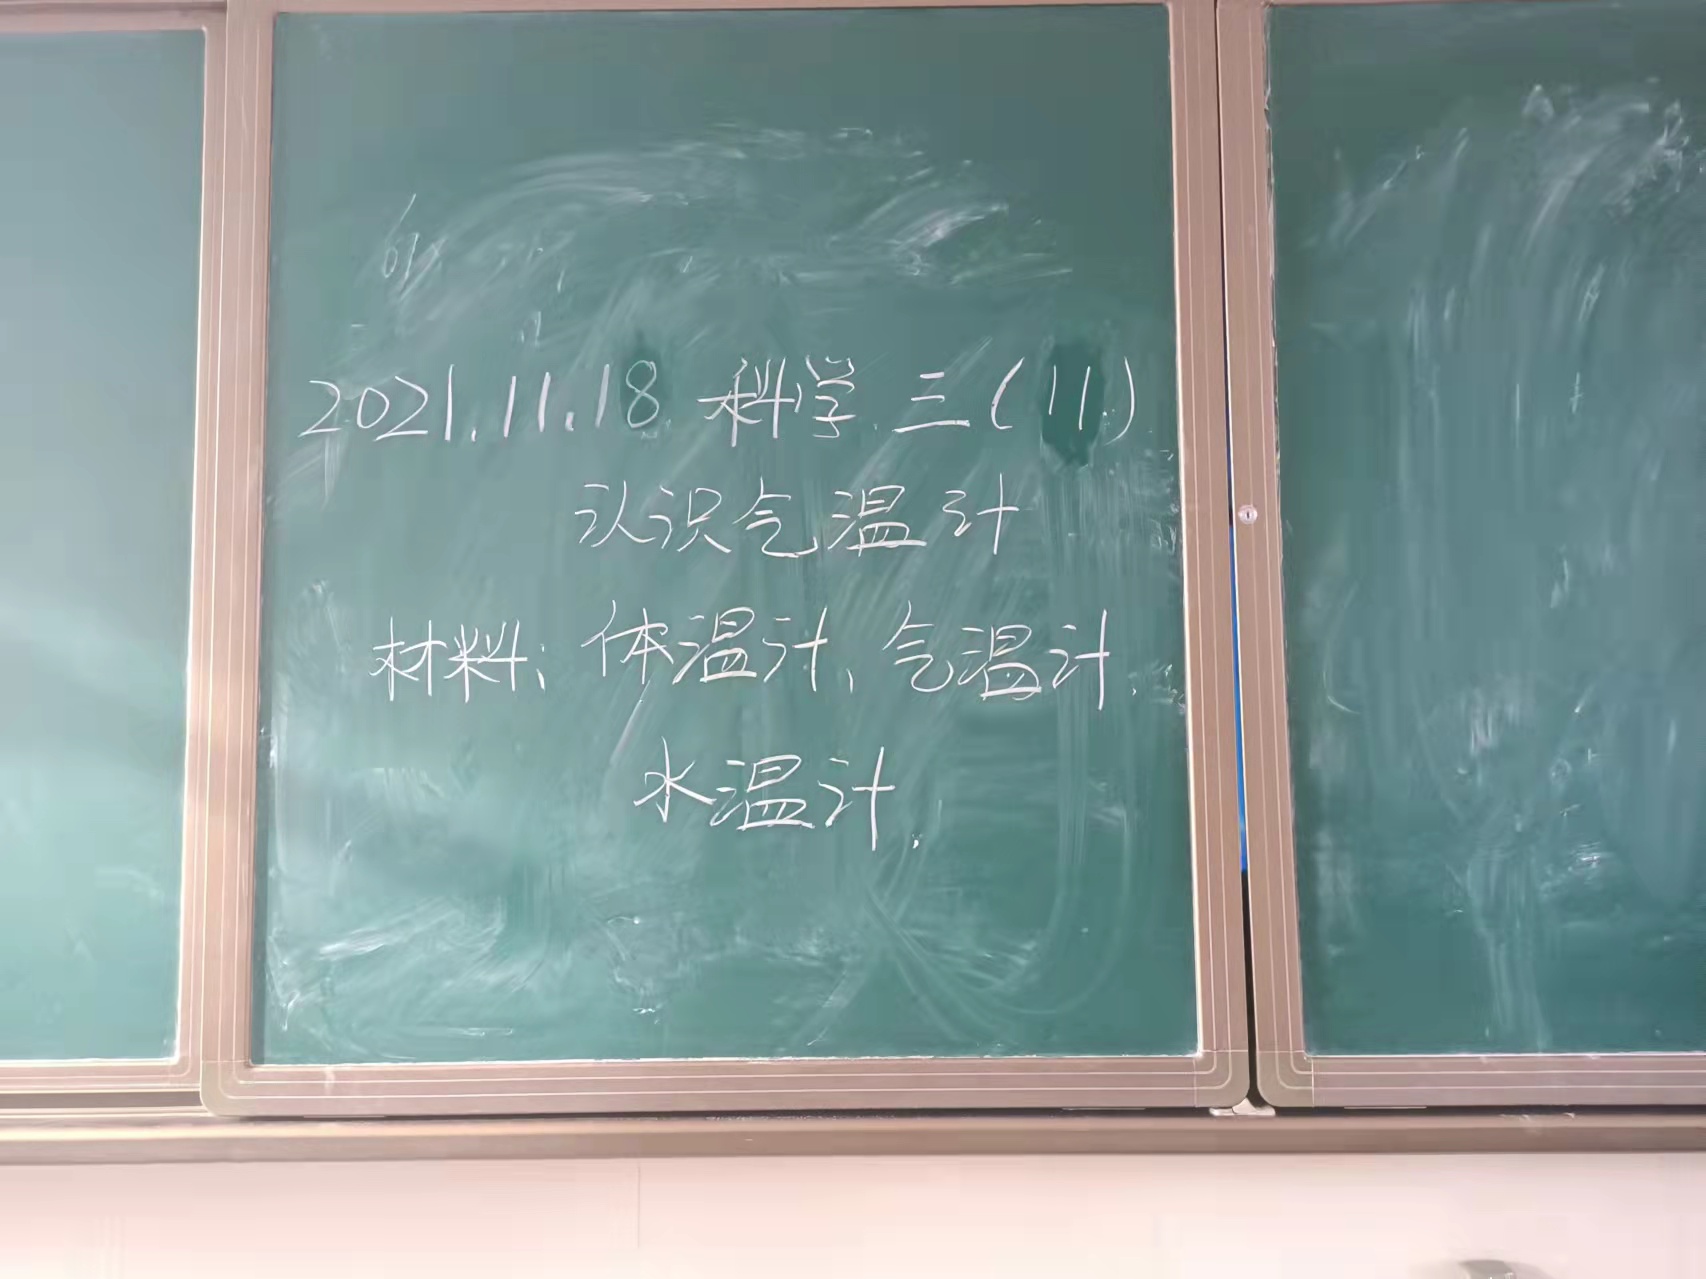 2021.11.18 科学 三(11)
认识气温计
材料:体温计、气温计、
水温计.